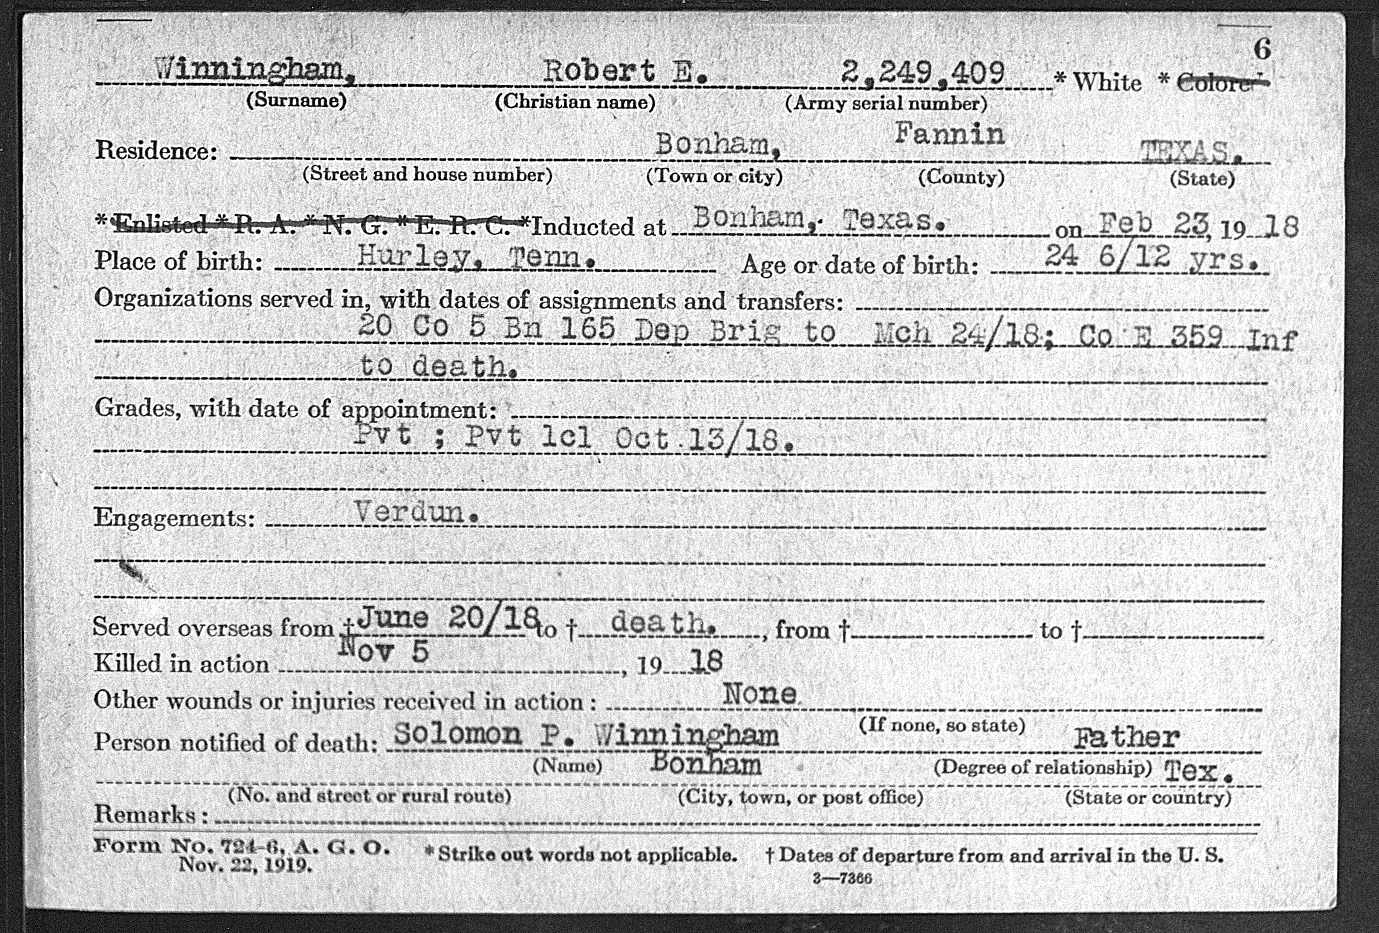 6
Winningham, Robert E. 2,249,409 * White * Colored
(Surname) (Christian name) (Army serial number)
Residence: Bonham, Fannin TEXAS.
(Street and house number) (Town or city) (County) (State)
*Enlisted * R. A. * N. G. * E. R. C. *Inducted at Bonham, Texas. on Feb 23, 19 18
Place of birth: Hurley, Tenn. Age or date of birth: 24 6/12 yrs.
Organizations served in, with dates of assignments and transfers:
20 Co 5 Bn 165 Dep Brig to Mch 24/18; Co E 359 Inf
to death.
Grades, with date of appointment:
Pvt ; Pvt 1cl Oct 13/18.
Engagements: Verdun.
Served overseas from † June 20/18 to † death. , from † to †
Killed in action Nov 5 , 19 18
Other wounds or injuries received in action : None
(If none, so state)
Person notified of death: Solomon P. Winningham Father
(Name) (Degree of relationship)
Bonham Tex.
(No. and street or rural route) (City, town, or post office) (State or country)
Remarks :
Form No. 724-6, A. G. O. * Strike out words not applicable. † Dates of departure from and arrival in the U. S.
Nov. 22, 1919. 3—7366